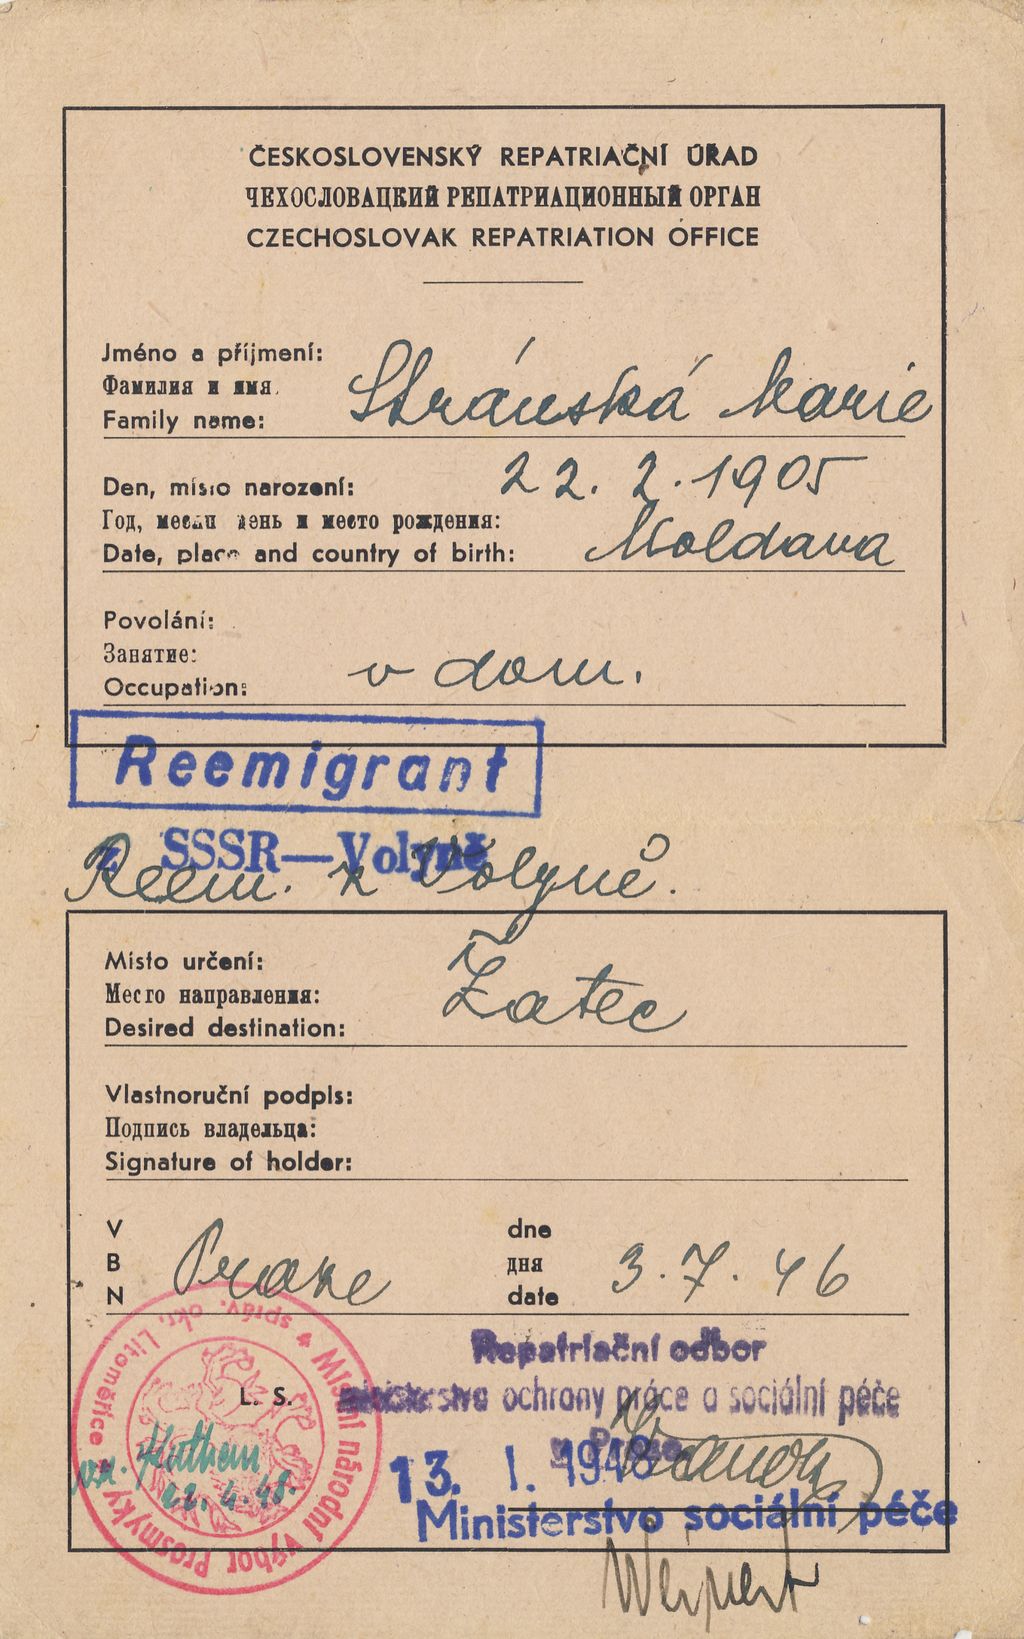 ČESKOSLOVENSKÝ REPATRIAČNÍ ÚŘAD
ЧЕХОСЛОВАЦКИЙ РЕПАТРИАЦИОННЫЙ ОРГАН
CZECHOSLOVAK REPATRIATION OFFICE
Jméno a příjmení:
Фамилия и имя.
Family name:
Stránská Marie
Den, místo narození:
22. 2. 1905
Год, месяц день и место рождения:
Date, place and country of birth:
Moldava
Povolání:
Занятие:
Occupation:
v dom.
Reemigrant
z SSSR—Volyně
Reem. z Volyně.
Místo určení:
Место направления:
Desired destination:
Žatec
Vlastnoruční podpis:
Подпись владельца:
Signature of holder:
V dne
В дня
N date
Praze 3. 7. 46
Repatriační odbor
ministerstva ochrany práce a sociální péče
v Praze
L. S.
Místní národní výbor Prosmyky
správ. okr. Litoměřice
22. 4. 48.
13. I. 1948
Ministerstvo sociální péče